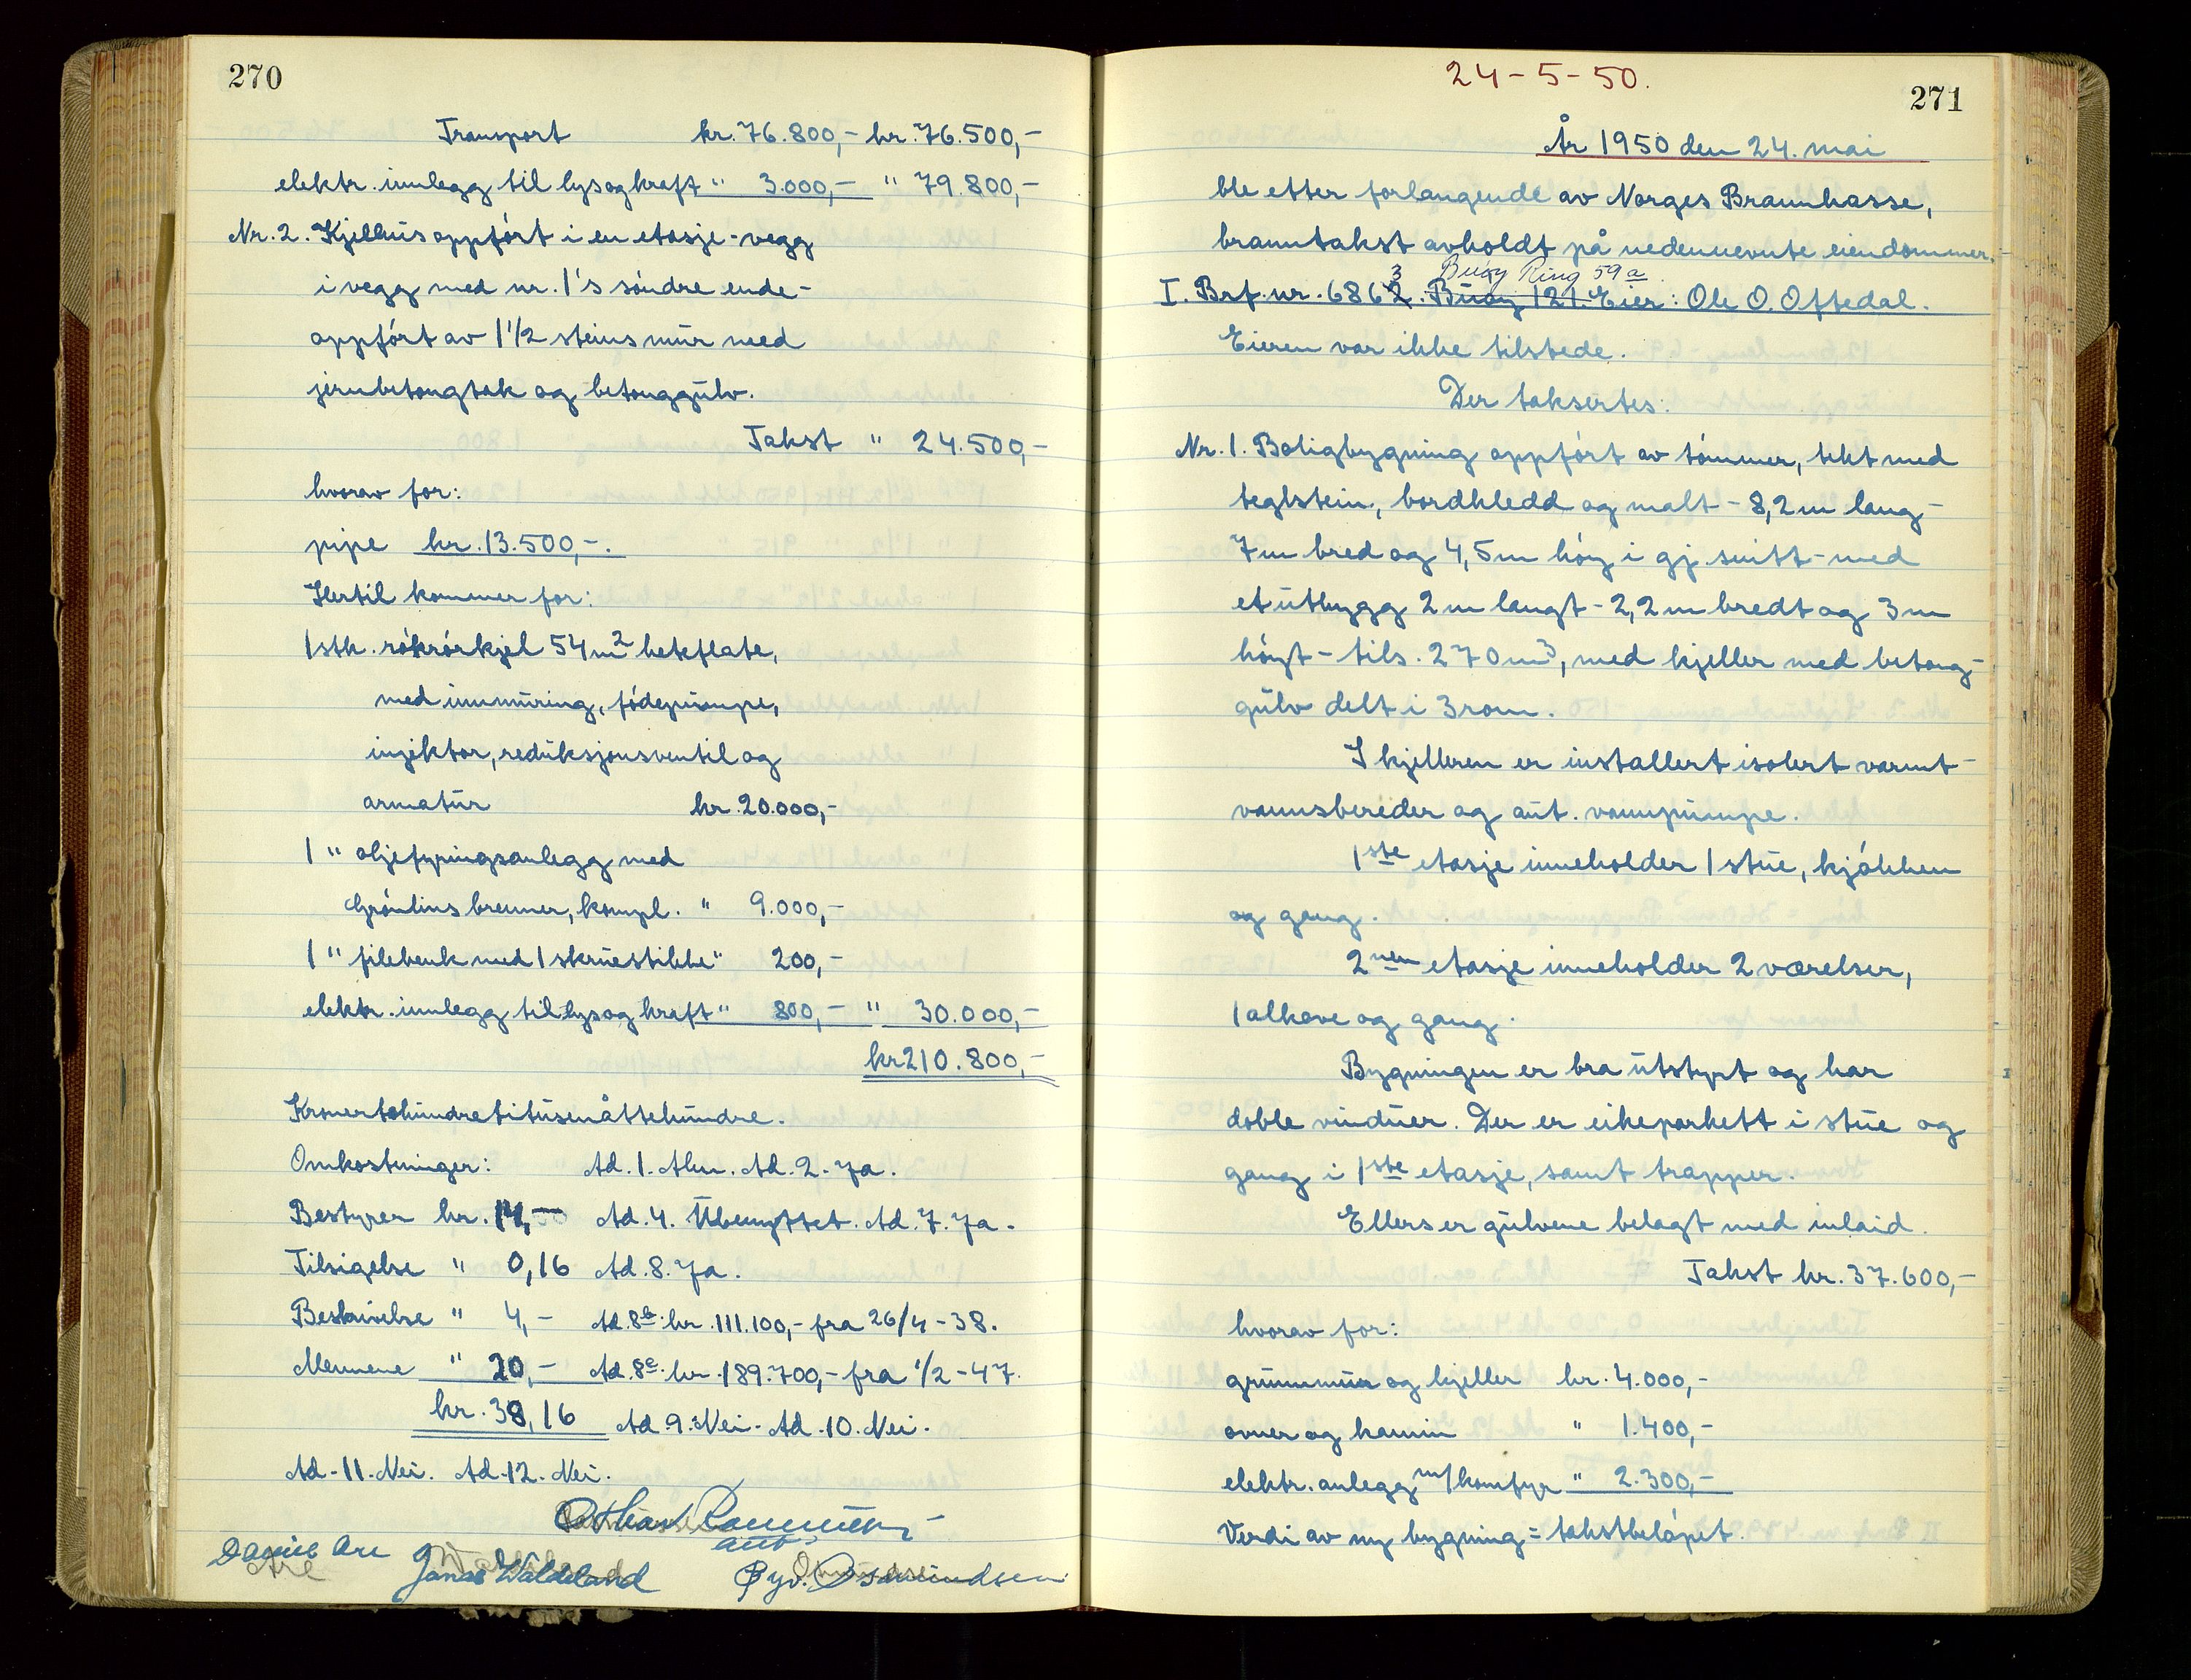 270
Transport kr. 76.800,- kr. 76.500,-
elektr. innlegg til lys og kraft " 3.000,- " 79.800,-
Nr. 2. Kjelhus oppført i en etasje - vegg
i vegg med nr. 1's søndre ende -
oppført av 1 1/2 steins mur med
jernbetongtak og betonggulv.
Takst " 24.500,-
hvorav for:
pipe kr. 13.500,-.
Hertil kommer for:
1 stk. røkrørkjel 54 m² hetflate,
med innmuring, fødepumpe,
injektor, reduksjonsventil og
armatur kr. 20.000,-
1 " oljefyringsanlegg med
Grønlins brenner, kompl. " 9.000,-
1 " filebenk med 1 skruestikke " 200,-
elektr. innlegg til lys og kraft " 800,- " 30.000,-
kr 210.800,-
Kronertohundretitusenåttehundre.
Omkostninger: Ad. 1. Alm. Ad. 2. Ja.
Bestyrer kr. 14,- Ad. 4. Ubenyttet. Ad. 7. Ja.
Tilsigelse " 0,16 Ad. 8. Ja.
Beskrivelse " 4,- Ad. 8b. kr. 111.100,- fra 26/4-38.
Mennene " 20,- Ad. 8c. kr. 189.700,- fra 1/2-47.
kr. 38,16 Ad 9. Nei. Ad. 10. Nei.
Ad. 11. Nei. Ad. 12. Nei.
Daniel Are Jonas Wådeland Øyv. Osmundsen
24-5-50.
271
År 1950 den 24. mai
ble etter forlangende av Norges Brannkasse,
branntakst avholdt på nedennevnte eiendommer.
3 Buøy Ring 59a
I. Brf. nr. 6862. Buøy 121. Eier: Ole O. Oftedal.
Eieren var ikke tilstede.
Der taksertes:
Nr. 1. Boligbygning oppført av tømmer, tekt med
teglstein, bordkledd og malt - 8,2 m lang -
7 m bred og 4,5 m høy i gj. snitt - med
et utbygg 2 m langt - 2,2 m bredt og 3 m
høyt - tils. 270 m³, med kjeller med betong-
gulv delt i 3 rom.
I kjelleren er installert isolert varmt-
vannsbereder og aut. vannpumpe.
1ste etasje inneholder 1 stue, kjøkken
og gang.
2nen etasje inneholder 2 værelser,
1 alkove og gang.
Bygningen er bra utstyrt og har
doble vinduer. Der er eikeparkett i stue og
gang i 1ste etasje, samt trapper.
Ellers er gulvene belagt med inlaid.
Takst kr. 37.600,-
hvorav for:
grunnmur og kjeller kr. 4.000,-
ovner og kamin " 1.400,-
elektr. anlegg m/komfyr " 2.300,-
Verdi av ny bygning = takstbeløpet.